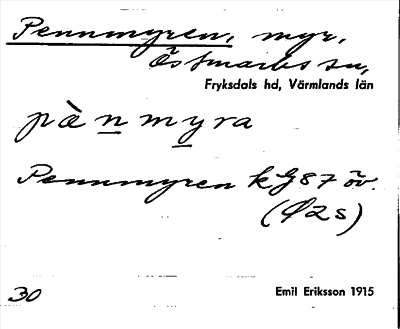 Pennmyren, myr,
Östmarks sn,
Fryksdals hd, Värmlands län
pànmyra
Pennmyren kG87 öv.
(Ø2s)
30
Emil Eriksson 1915